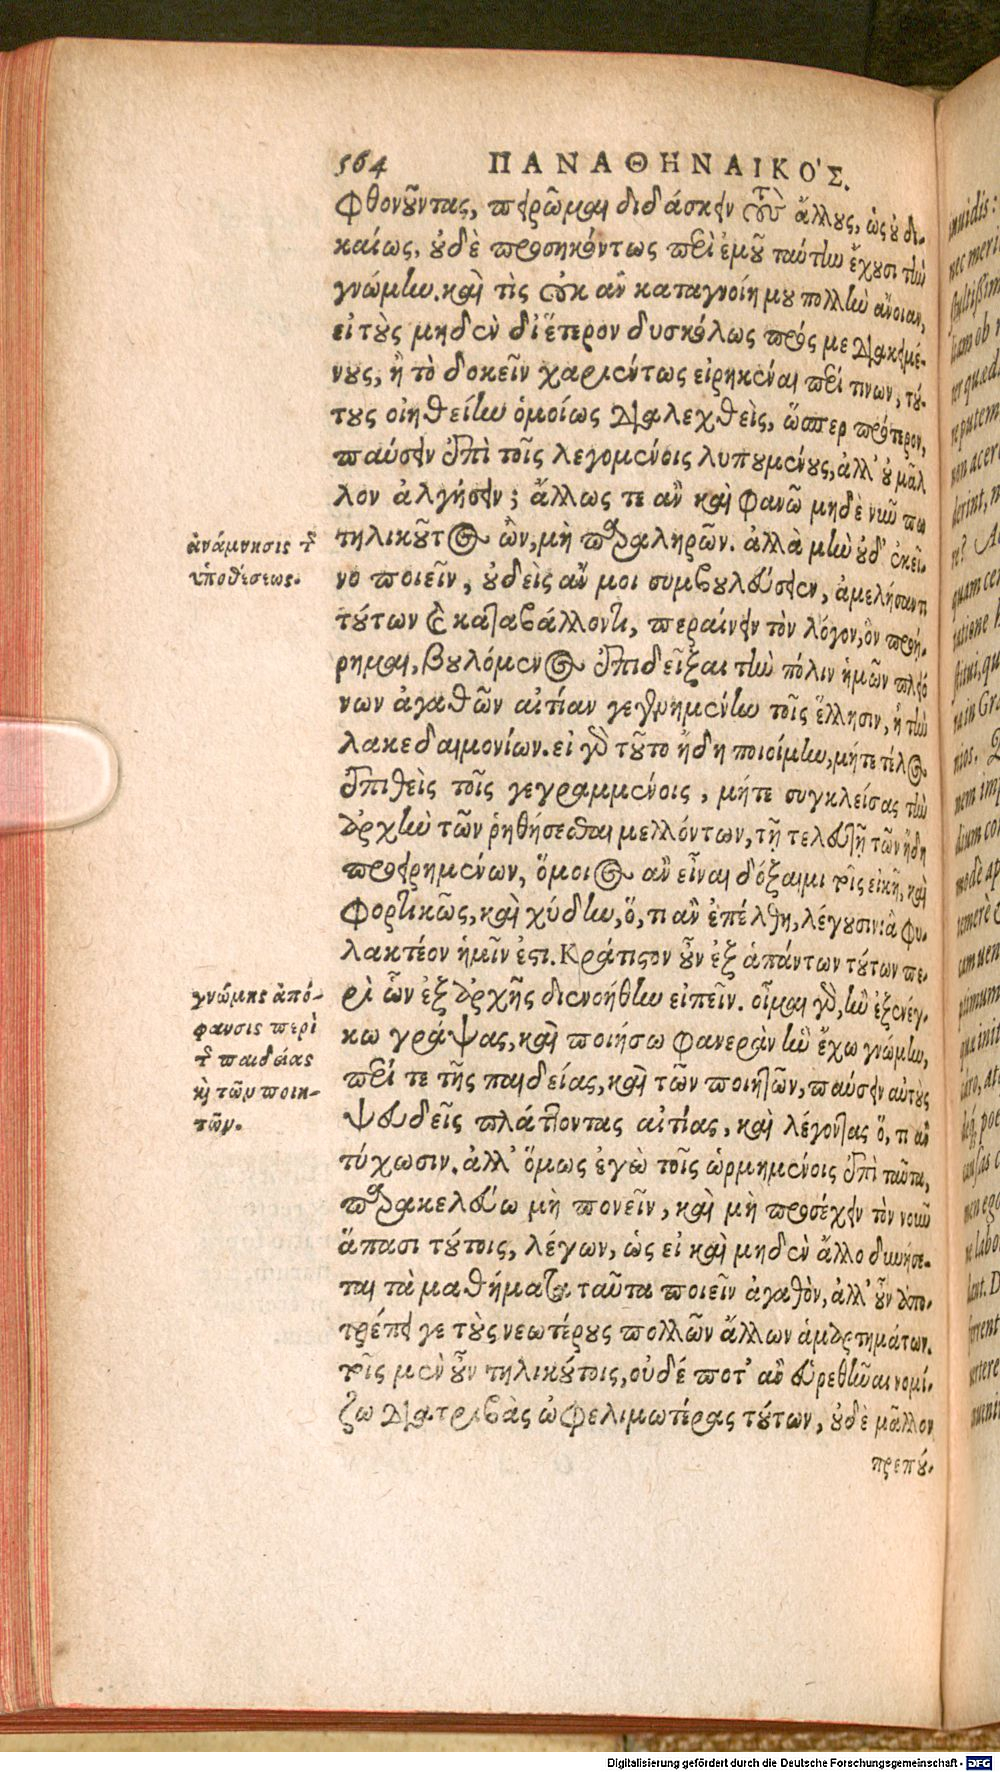 564 ΠΑΝΑΘΗΝΑΙΚΟ'Σ.
φθονοῦντας, πειρῶμαι διδάσκειν τοὺς ἄλλους, ὡς οὐ δι-
καίως, οὐδὲ προσηκόντως περὶ ἐμοῦ ταύτην ἔχουσι τὴν
γνώμην. καὶ τὶς οὐκ ἂν καταγνοίη μου πολλὴν ἄνοιαν,
εἰ τοὺς μηδὲν δι' ἕτερον δυσκόλως πρός με διακειμέ-
νους, ἢ τὸ δοκεῖν χαριέντως εἰρηκέναι περί τινων, τού-
τους οἰηθείην ὁμοίως διαλεχθεὶς, ὥσπερ πρότερον,
παύσειν ἐπὶ τοῖς λεγομένοις λυπουμένους, ἀλλ' οὐ μᾶλ
λον ἀλγήσειν; ἄλλως τε ἂν καὶ φανῶ μηδὲ νῦν πω
τηλικοῦτος ὢν, μὴ παραληρῶν. ἀλλὰ μὴν οὐδ' ἐκεῖ-
νο ποιεῖν, οὐδεὶς ἄν μοι συμβουλεύσειεν, ἀμελήσαντι
τούτων καὶ καταβάλλοντι, περαίνειν τὸν λόγον, ὃν προῄ-
ρημαι, βουλόμενος ἐπιδεῖξαι τὴν πόλιν ἡμῶν πλειό
νων ἀγαθῶν αἰτίαν γεγενημένην τοῖς ἕλλησιν, ἢ τὴν
λακεδαιμονίων. εἰ γὰρ τοῦτο ἤδη ποιοίμην, μήτε τέλος
ἐπιθεὶς τοῖς γεγραμμένοις, μήτε συγκλείσας τὴν
ἀρχὴν τῶν ῥηθήσεσθαι μελλόντων, τῇ τελευτῇ τῶν ἤδη
προειρημένων, ὅμοιος ἂν εἶναι δόξαιμι τοῖς εἰκῆ, καὶ
φορτικῶς, καὶ χύδην, ὅ, τι ἂν ἐπέλθῃ, λέγουσιν· ἃ φυ-
λακτέον ἡμῖν ἐστι. Κράτιστον οὖν ἐξ ἁπάντων τούτων πε-
ρὶ ὧν ἐξ ἀρχῆς διενοήθην εἰπεῖν. οἶμαι γὰρ, ἣν ἐξενέγ-
κω γράψας, καὶ ποιήσω φανερὰν ἣν ἔχω γνώμην,
περί τε τῆς παιδείας, καὶ τῶν ποιητῶν, παύσειν αὐτοὺς
ψευδεῖς πλάττοντας αἰτίας, καὶ λέγοντας ὅ, τι ἂν
τύχωσιν. ἀλλ' ὅμως ἐγὼ τοῖς ὡρμημένοις ἐπὶ ταῦτα,
παρακελεύω μὴ πονεῖν, καὶ μὴ προσέχειν τὸν νοῦν
ἅπασι τούτοις, λέγων, ὡς εἰ καὶ μηδὲν ἄλλο δυνήσε-
ται τὰ μαθήματα ταῦτα ποιεῖν ἀγαθὸν, ἀλλ' οὖν ἀπο-
τρέπει γε τοὺς νεωτέρους πολλῶν ἄλλων ἁμαρτημάτων.
τοῖς μὲν οὖν τηλικούτοις, οὐδέ ποτ' ἂν εὑρεθῆναι νομί-
ζω διατριβὰς ὠφελιμωτέρας τούτων, οὐδὲ μᾶλλον
πρεπού-
ἀνάμνησις τῆς
ὑποθέσεως.
γνώμης ἀπό-
φανσις περὶ
τῆς παιδείας
καὶ τῶν ποιη-
τῶν.
Digitalisierung gefördert durch die Deutsche Forschungsgemeinschaft - DFG